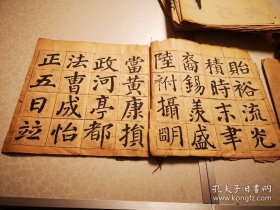 貽裕流光
積時末聿
裔錫羨盛
陸祔攝明
當黃康損
政河亭都
法曹成怡
正五日竝
孔夫子旧书网